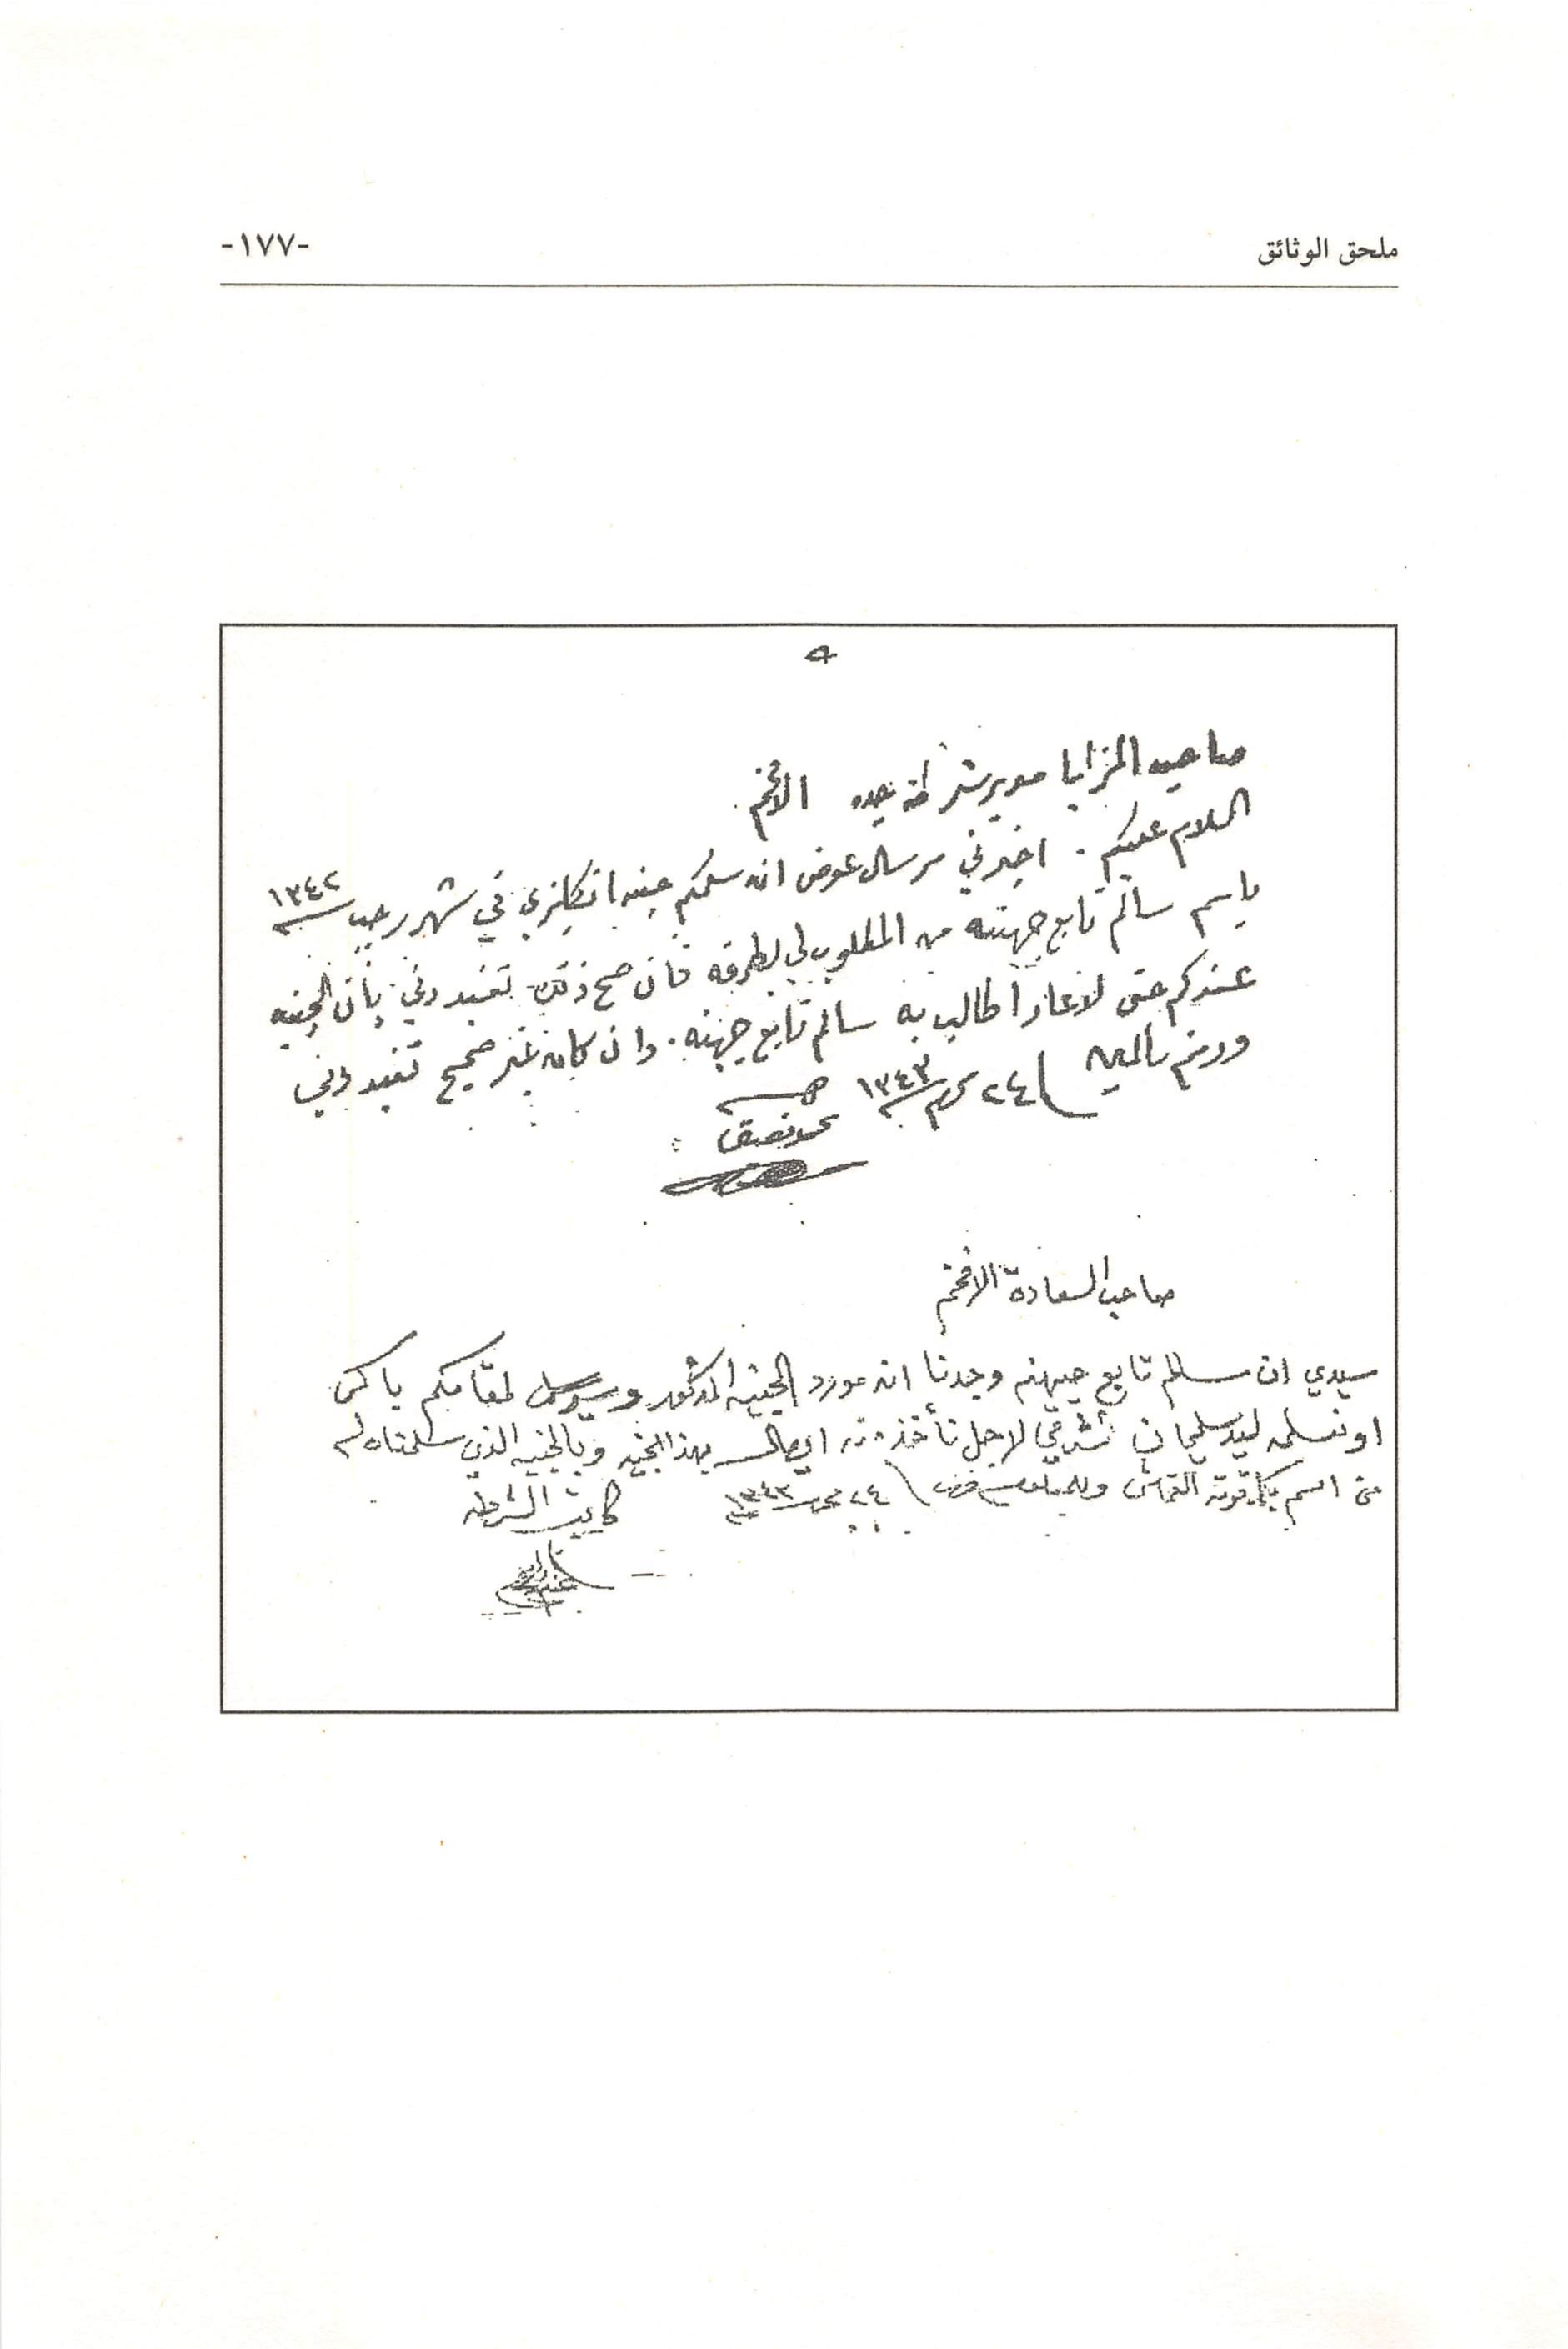 ملحق الوثائق
-١٧٧-
صاحب المزايا مدير شرطة جده الافخم
السلام عليكم . اخبرني مرسال عوض انه سلمكم جنيه انكليزي في شهر رجب سنة ١٣٤٢
باسم سالم تابع جهينه من المطلوب لي بطرفه فان صح ذلك تفيدوني بأن الجنيه
عندكم حتى لا عاد أطالب به سالم تابع جهينه . وان كان غير صحيح تفيدوني
ودمتم سالمين ٢٤ محرم سنة ١٣٤٣
محمد نصيف
صاحب السعادة الافخم
سيدي ان سالم تابع جهينه وجدنا انه مورد الجنيه المذكور لمقامكم باكر
او نسلمه ليد سليمان لاجل نأخذ منه ايصال بهذا الجنيه وبالجنيه الذي سلمناه له
من اسم القماش ٢٤ محرم سنة ١٣٤٣
كاتب الشرطه